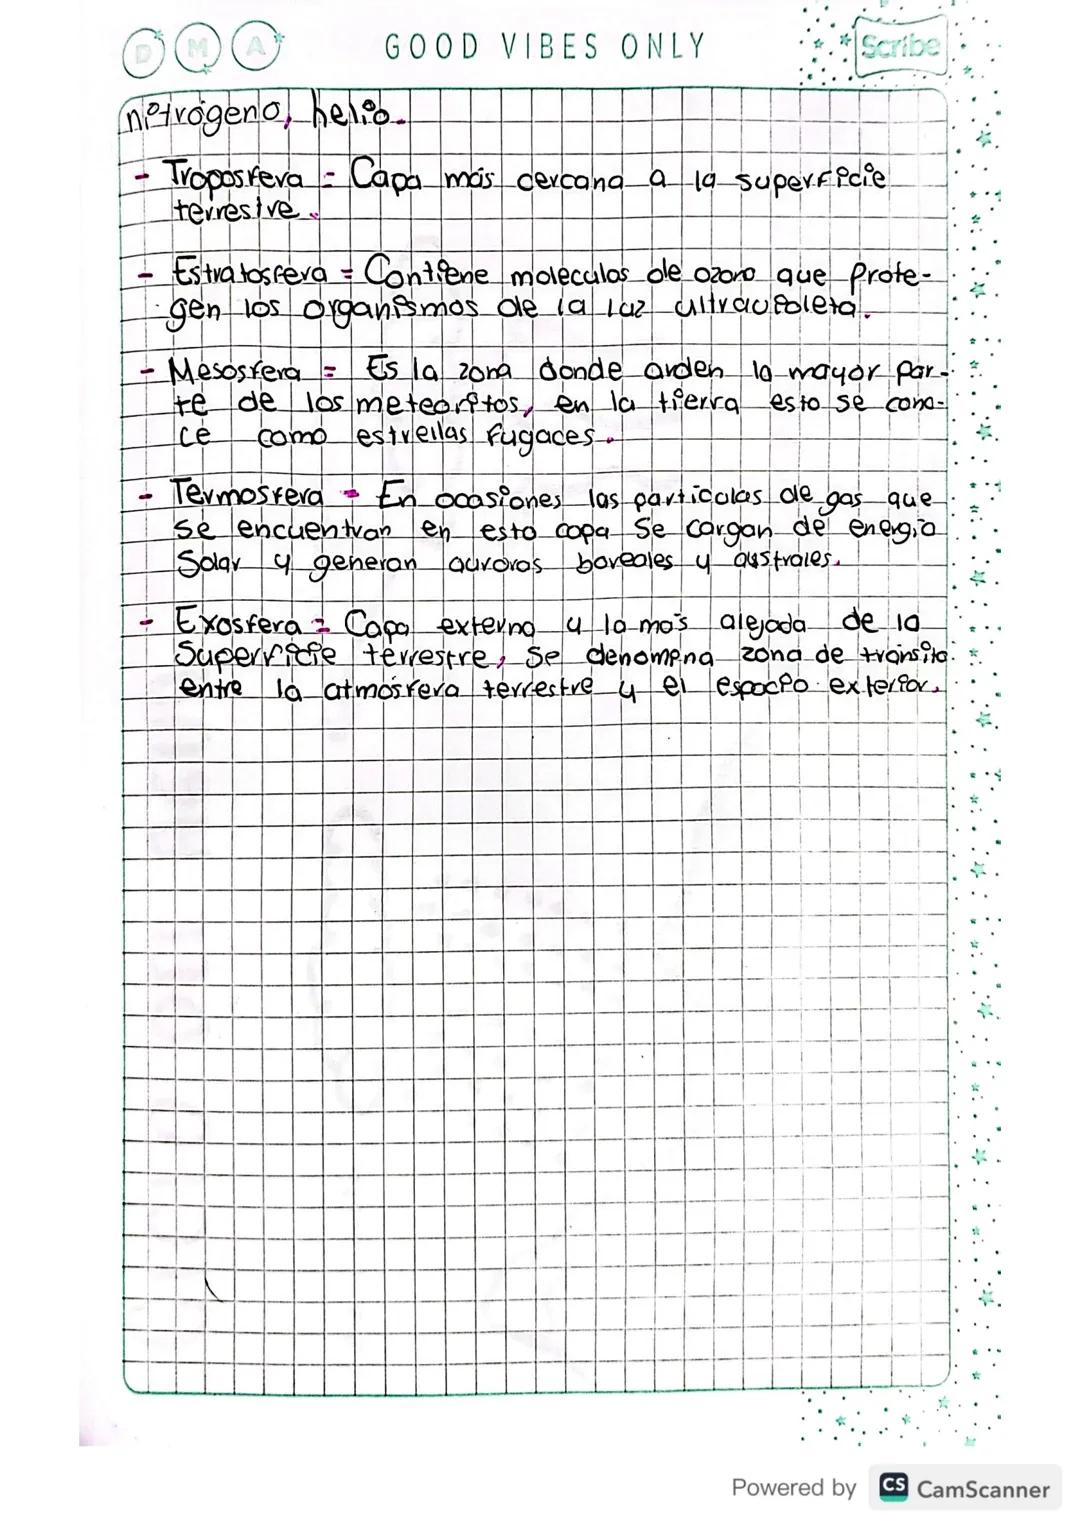 D M A GOOD VIBES ONLY Scribe
nitrógeno, helio.
- Troposfera = Capa más cercana a la superficie
terrestre.
- Estratosfera = Contiene moleculas de ozono que prote-
gen los organismos de la luz ultravioleta.
- Mesosfera = Es la zona donde arden la mayor par-
te de los meteoritos, en la tierra esto se cono-
ce como estrellas fugaces.
- Termosfera = En ocasiones las particulas de gas que
se encuentran en esta capa se cargan de energia
Solar y generan auroras boreales y australes.
- Exosfera = Capa externa y la más alejada de la
Superficie terrestre, se denomina zona de transito
entre la atmósfera terrestre y el espacio exterior.
Powered by CS CamScanner